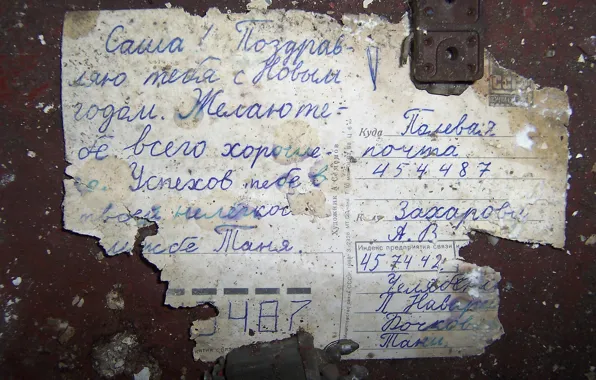 Саша! Поздрав-
ляю тебя с Новым
годом. Желаю те-
бе всего хороше-
го. Успехов тебе в
твоей нелегкой
службе Таня
Куда Полевая
почта
454487
Кому Захарову
А. В.
Индекс предприятия связи
457442
Челяби
П. Навар
Рочков
Тани